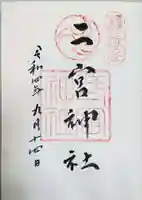 二宮神社
令和四年九月十四日